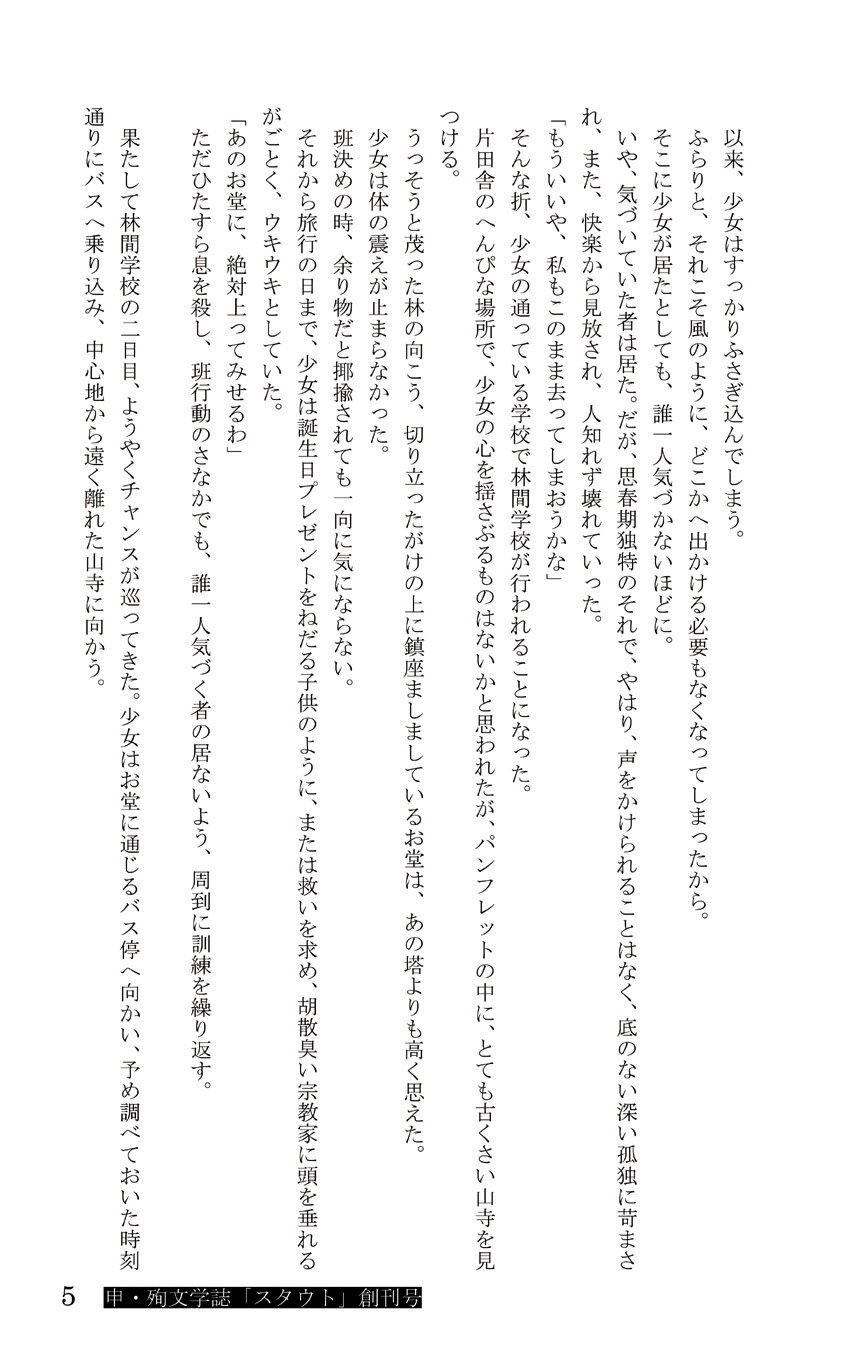 以来、少女はすっかりふさぎ込んでしまう。
ふらりと、それこそ風のように、どこかへ出かける必要もなくなってしまったから。
そこに少女が居たとしても、誰一人気づかないほどに。
いや、気づいていた者は居た。だが、思春期独特のそれで、やはり、声をかけられることはなく、底のない深い孤独に苛まさ
れ、また、快楽から見放され、人知れず壊れていった。
「もういいや、私もこのまま去ってしまおうかな」
そんな折、少女の通っている学校で林間学校が行われることになった。
片田舎のへんぴな場所で、少女の心を揺さぶるものはないかと思われたが、パンフレットの中に、とても古くさい山寺を見
つける。
うっそうと茂った林の向こう、切り立ったがけの上に鎮座ましましているお堂は、あの塔よりも高く思えた。
少女は体の震えが止まらなかった。
班決めの時、余り物だと揶揄されても一向に気にならない。
それから旅行の日まで、少女は誕生日プレゼントをねだる子供のように、または救いを求め、胡散臭い宗教家に頭を垂れる
がごとく、ウキウキとしていた。
「あのお堂に、絶対上ってみせるわ」
ただひたすら息を殺し、班行動のさなかでも、誰一人気づく者の居ないよう、周到に訓練を繰り返す。
果たして林間学校の二日目、ようやくチャンスが巡ってきた。少女はお堂に通じるバス停へ向かい、予め調べておいた時刻
通りにバスへ乗り込み、中心地から遠く離れた山寺に向かう。
5 申・殉文学誌「スタウト」創刊号